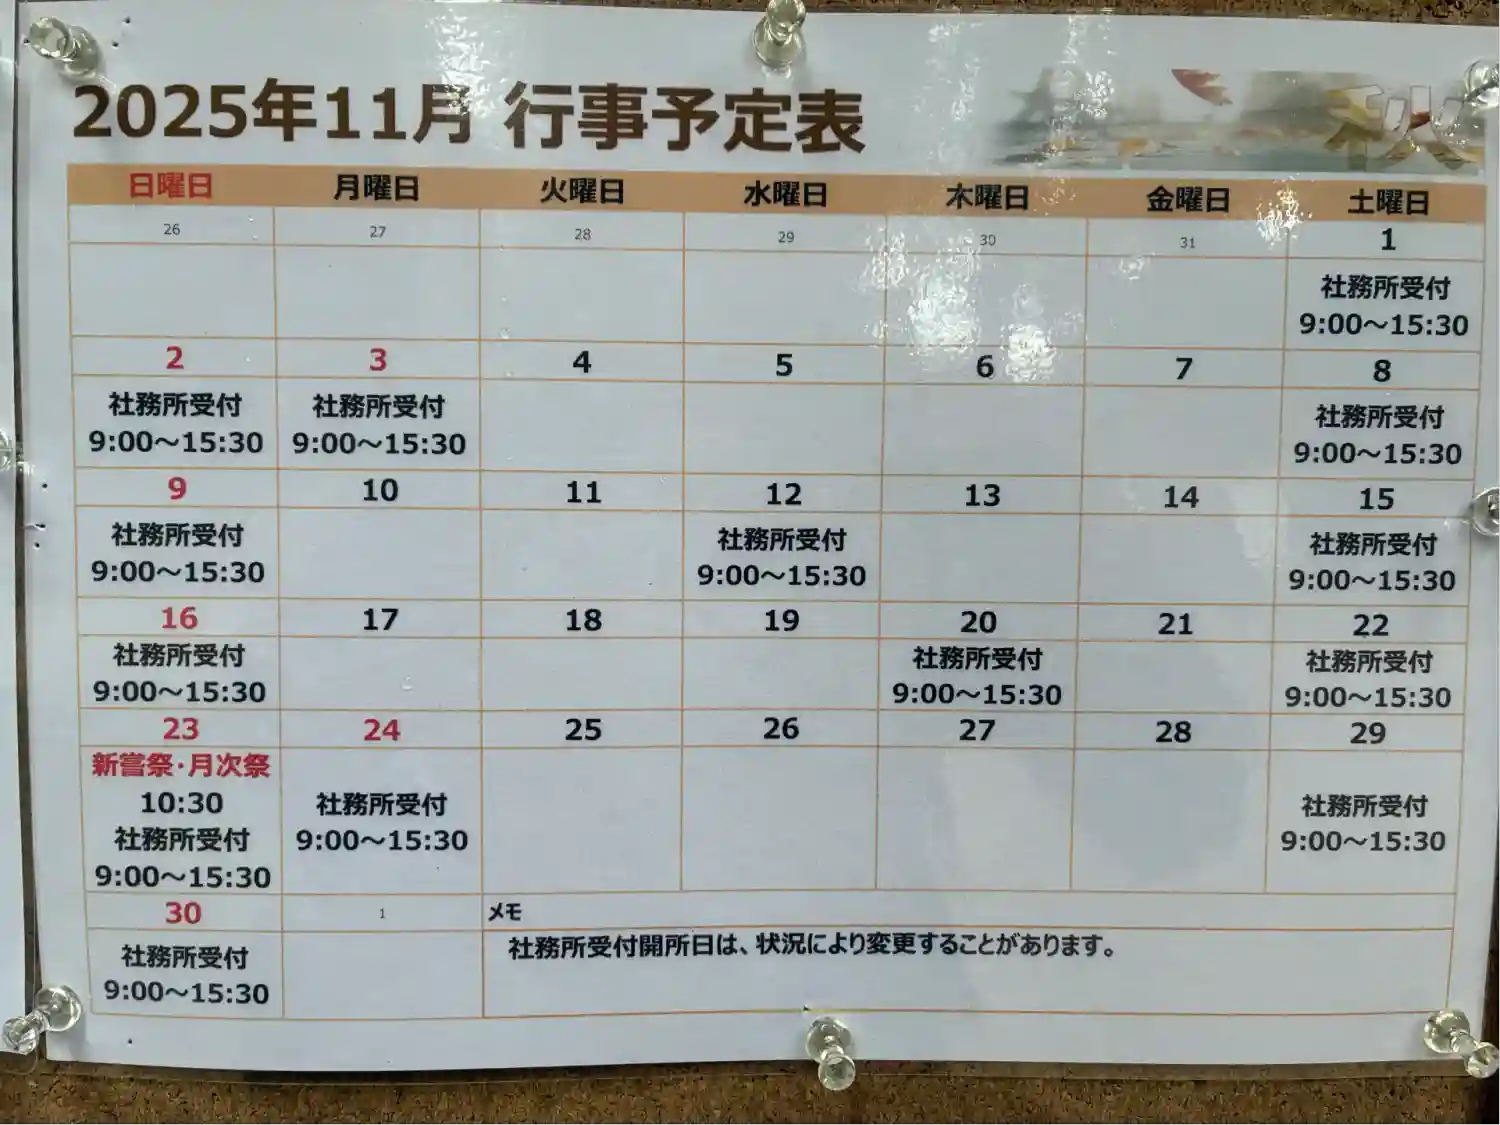 2025年11月 行事予定表
秋
日曜日 月曜日 火曜日 水曜日 木曜日 金曜日 土曜日
26 27 28 29 30 31 1
社務所受付
9:00～15:30
2 3 4 5 6 7 8
社務所受付 社務所受付 社務所受付
9:00～15:30 9:00～15:30 9:00～15:30
9 10 11 12 13 14 15
社務所受付 社務所受付 社務所受付
9:00～15:30 9:00～15:30 9:00～15:30
16 17 18 19 20 21 22
社務所受付 社務所受付 社務所受付
9:00～15:30 9:00～15:30 9:00～15:30
23 24 25 26 27 28 29
新嘗祭・月次祭
10:30 社務所受付 社務所受付
社務所受付 9:00～15:30 9:00～15:30
9:00～15:30
30 1 メモ
社務所受付 社務所受付開所日は、状況により変更することがあります。
9:00～15:30